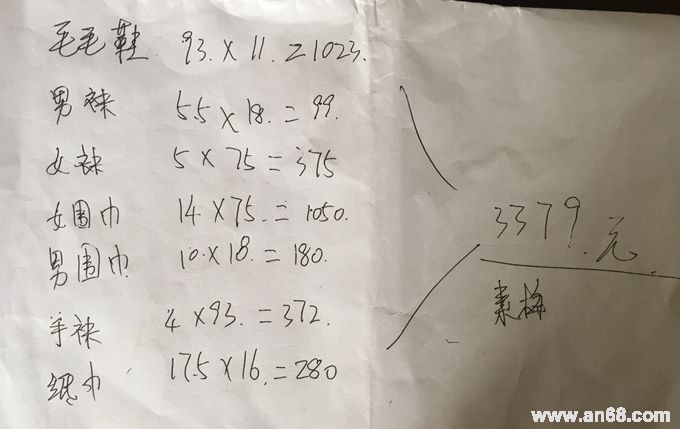 毛毛鞋 93.×11.=1023.
男袜 5.5×18.=99.
女袜 5×75=375
女围巾 14×75.=1050.
男围巾 10.×18.=180.
手袜 4×93.=372.
纸巾 17.5×16.=280
3379.元
www.an68.com